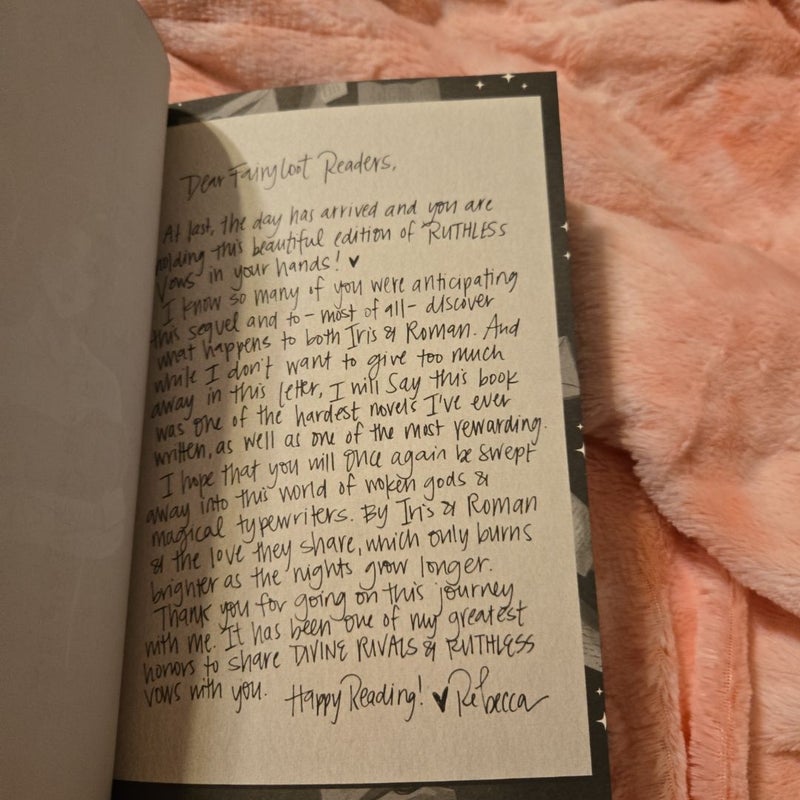 Dear FairyLoot Readers,
At last, the day has arrived and you are
holding this beautiful edition of RUTHLESS
VOWS in your hands! ♥
I know so many of you were anticipating
this sequel and to - most of all - discover
what happens to both Iris & Roman. And
while I don't want to give too much
away in this letter, I will say this book
was one of the hardest novels I've ever
written, as well as one of the most rewarding.
I hope that you will once again be swept
away into this world of woken gods &
magical typewriters. By Iris & Roman
& the love they share, which only burns
brighter as the nights grow longer.
Thank you for going on this journey
with me. It has been one of my greatest
honors to share DIVINE RIVALS & RUTHLESS
VOWS with you.
Happy Reading! ♥ Rebecca